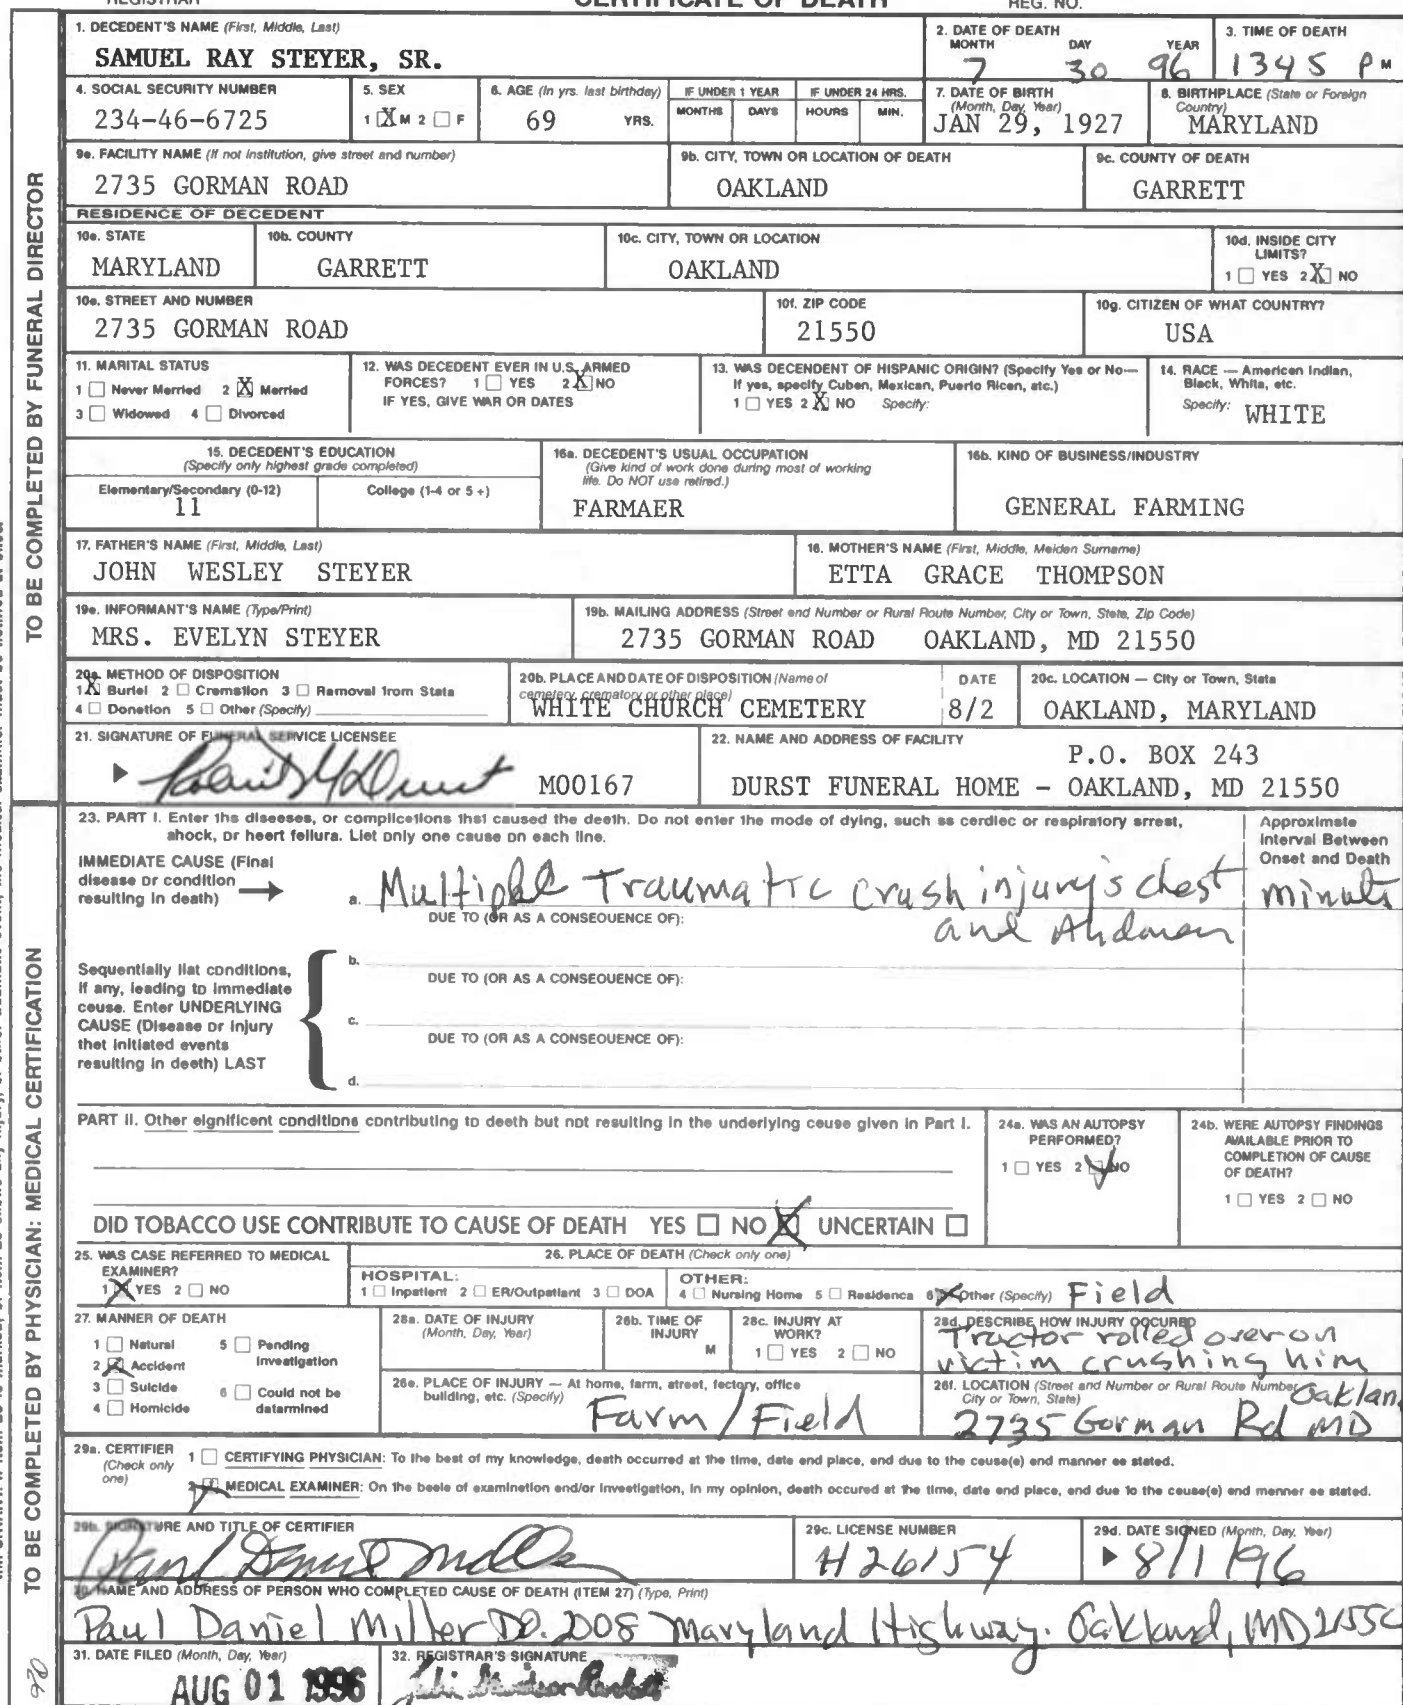 CERTIFICATE OF DEATH
REGISTRAR
REG. NO.
TO BE COMPLETED BY FUNERAL DIRECTOR
1. DECEDENT'S NAME (First, Middle, Last)
SAMUEL RAY STEYER, SR.
2. DATE OF DEATH
MONTH DAY YEAR
7 30 96
3. TIME OF DEATH
1345 P M
4. SOCIAL SECURITY NUMBER
234-46-6725
5. SEX
1 X M 2 F
6. AGE (In yrs. last birthday)
69 YRS.
IF UNDER 1 YEAR
MONTHS DAYS
IF UNDER 24 HRS.
HOURS MIN.
7. DATE OF BIRTH
(Month, Day, Year)
JAN 29, 1927
8. BIRTHPLACE (State or Foreign
Country)
MARYLAND
9a. FACILITY NAME (If not institution, give street and number)
2735 GORMAN ROAD
9b. CITY, TOWN OR LOCATION OF DEATH
OAKLAND
9c. COUNTY OF DEATH
GARRETT
RESIDENCE OF DECEDENT
10a. STATE
MARYLAND
10b. COUNTY
GARRETT
10c. CITY, TOWN OR LOCATION
OAKLAND
10d. INSIDE CITY
LIMITS?
1 YES 2 X NO
10e. STREET AND NUMBER
2735 GORMAN ROAD
10f. ZIP CODE
21550
10g. CITIZEN OF WHAT COUNTRY?
USA
11. MARITAL STATUS
1 Never Married 2 X Married
3 Widowed 4 Divorced
12. WAS DECEDENT EVER IN U.S. ARMED
FORCES? 1 YES 2 X NO
IF YES, GIVE WAR OR DATES
13. WAS DECENDENT OF HISPANIC ORIGIN? (Specify Yes or No—
If yes, specify Cuban, Mexican, Puerto Rican, etc.)
1 YES 2 X NO Specify:
14. RACE — American Indian,
Black, White, etc.
Specify: WHITE
15. DECEDENT'S EDUCATION
(Specify only highest grade completed)
Elementary/Secondary (0-12)
11
College (1-4 or 5 +)
16a. DECEDENT'S USUAL OCCUPATION
(Give kind of work done during most of working
life. Do NOT use retired.)
FARMAER
16b. KIND OF BUSINESS/INDUSTRY
GENERAL FARMING
17. FATHER'S NAME (First, Middle, Last)
JOHN WESLEY STEYER
18. MOTHER'S NAME (First, Middle, Maiden Surname)
ETTA GRACE THOMPSON
19a. INFORMANT'S NAME (Type/Print)
MRS. EVELYN STEYER
19b. MAILING ADDRESS (Street and Number or Rural Route Number, City or Town, State, Zip Code)
2735 GORMAN ROAD OAKLAND, MD 21550
20a. METHOD OF DISPOSITION
1 X Burial 2 Cremation 3 Removal from State
4 Donation 5 Other (Specify)
20b. PLACE AND DATE OF DISPOSITION (Name of
cemetery, crematory or other place)
WHITE CHURCH CEMETERY
DATE
8/2
20c. LOCATION — City or Town, State
OAKLAND, MARYLAND
21. SIGNATURE OF FUNERAL SERVICE LICENSEE
M00167
22. NAME AND ADDRESS OF FACILITY
P.O. BOX 243
DURST FUNERAL HOME - OAKLAND, MD 21550
TO BE COMPLETED BY PHYSICIAN: MEDICAL CERTIFICATION
23. PART I. Enter the diseases, or complications that caused the death. Do not enter the mode of dying, such as cardiac or respiratory arrest,
shock, or heart failure. List only one cause on each line.
Approximate
Interval Between
Onset and Death
IMMEDIATE CAUSE (Final
disease or condition
resulting in death)
a. Multiple Traumatic crush injury's chest
and Abdomen
minutes
DUE TO (OR AS A CONSEQUENCE OF):
Sequentially list conditions,
if any, leading to immediate
cause. Enter UNDERLYING
CAUSE (Disease or injury
that initiated events
resulting in death) LAST
b.
DUE TO (OR AS A CONSEQUENCE OF):
c.
DUE TO (OR AS A CONSEQUENCE OF):
d.
PART II. Other significant conditions contributing to death but not resulting in the underlying cause given in Part I.
24a. WAS AN AUTOPSY
PERFORMED?
1 YES 2 NO
24b. WERE AUTOPSY FINDINGS
AVAILABLE PRIOR TO
COMPLETION OF CAUSE
OF DEATH?
1 YES 2 NO
DID TOBACCO USE CONTRIBUTE TO CAUSE OF DEATH YES NO X UNCERTAIN
25. WAS CASE REFERRED TO MEDICAL
EXAMINER?
1 X YES 2 NO
26. PLACE OF DEATH (Check only one)
HOSPITAL:
1 Inpatient 2 ER/Outpatient 3 DOA
OTHER:
4 Nursing Home 5 Residence 6 X Other (Specify) Field
27. MANNER OF DEATH
1 Natural 5 Pending
Investigation
2 X Accident
3 Suicide 6 Could not be
determined
4 Homicide
28a. DATE OF INJURY
(Month, Day, Year)
28b. TIME OF
INJURY
M
28c. INJURY AT
WORK?
1 YES 2 NO
28d. DESCRIBE HOW INJURY OCCURED
Tractor rolled over on
victim crushing him
28e. PLACE OF INJURY — At home, farm, street, factory, office
building, etc. (Specify)
Farm/Field
28f. LOCATION (Street and Number or Rural Route Number,
City or Town, State)
Oakland
2735 Gorman Rd MD
29a. CERTIFIER
(Check only
one)
1 CERTIFYING PHYSICIAN: To the best of my knowledge, death occurred at the time, date and place, and due to the cause(s) and manner as stated.
2 MEDICAL EXAMINER: On the basis of examination and/or investigation, in my opinion, death occured at the time, date and place, and due to the cause(s) and manner as stated.
29b. SIGNATURE AND TITLE OF CERTIFIER
Paul Daniel Miller
29c. LICENSE NUMBER
H26154
29d. DATE SIGNED (Month, Day, Year)
8/1/96
30. NAME AND ADDRESS OF PERSON WHO COMPLETED CAUSE OF DEATH (ITEM 27) (Type, Print)
Paul Daniel Miller DO. 2008 Maryland Highway. Oakland, MD 21550
31. DATE FILED (Month, Day, Year)
AUG 01 1996
32. REGISTRAR'S SIGNATURE